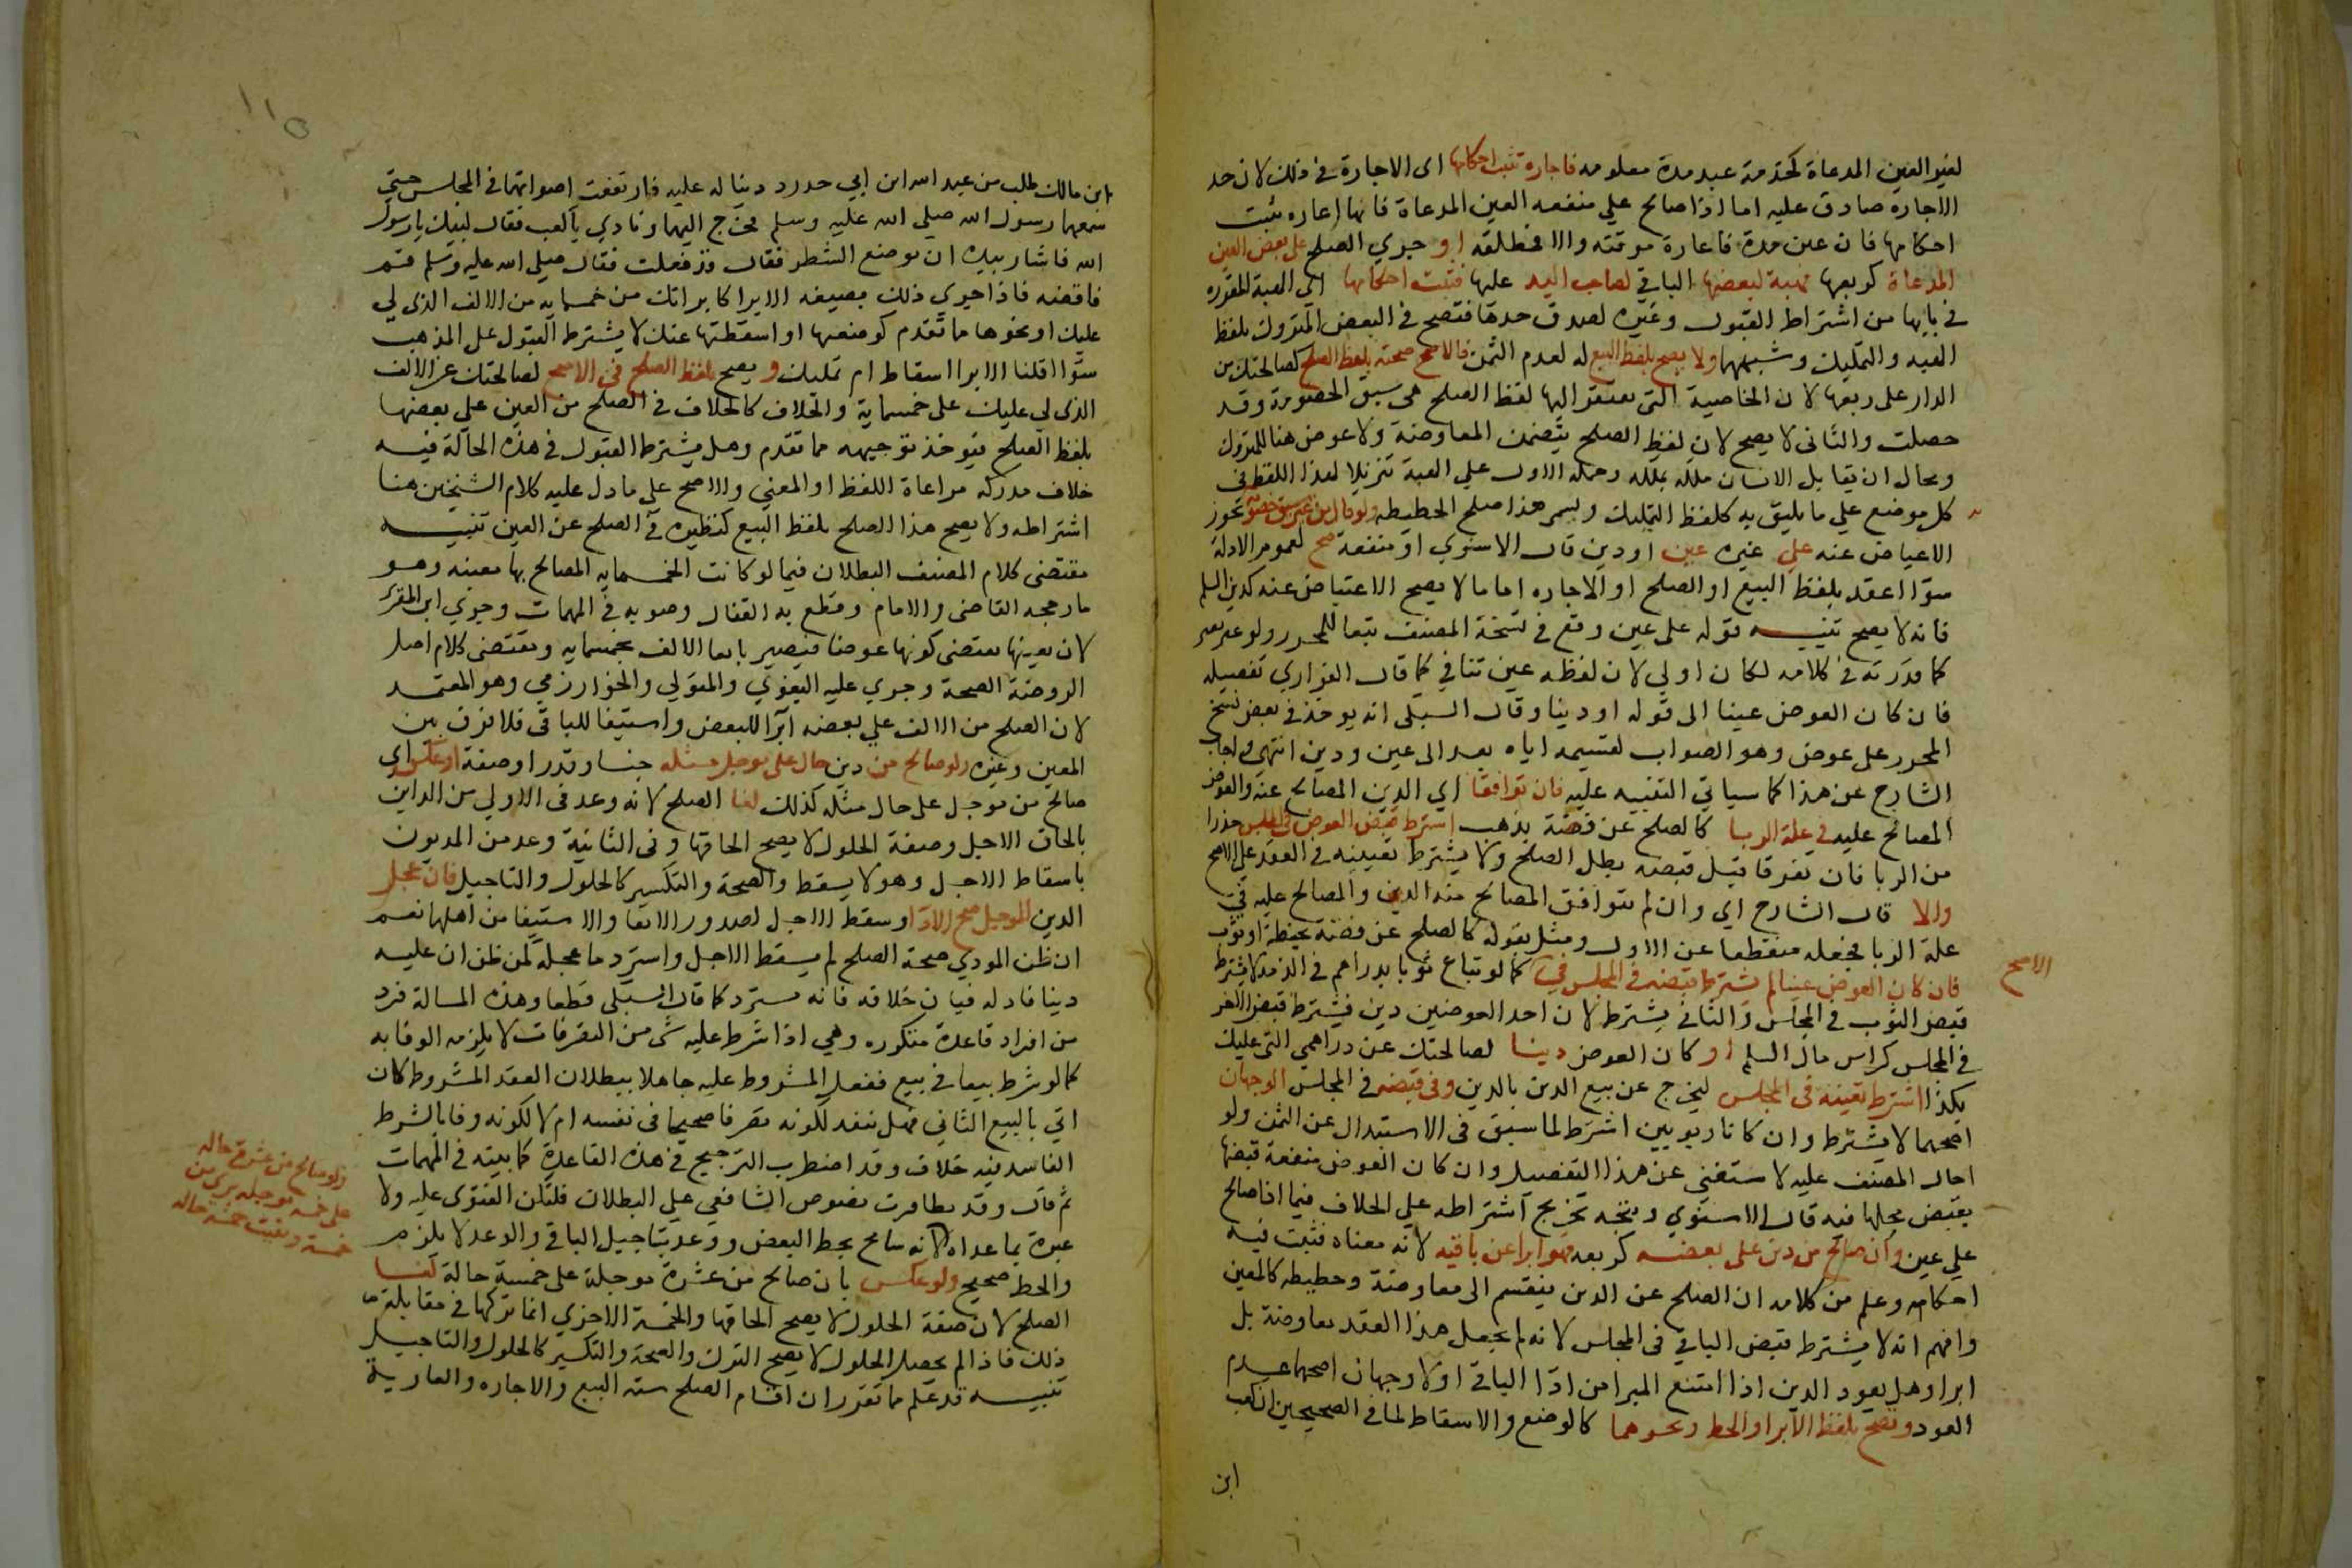 لغير العين المدعاة كخدمة عبد مدة معلومه فاجارة تثبت احكامها اى الاجارة في ذلك لان حد
الاجارة صادق عليه اما اذا صالح علي منفعه العين المدعاة فانها اعاره تثبت
احكامها فان عين مدة فاعارة موقته والا فمطلقه او جري الصلح على بعض العين
المدعاة كربعها فهبة لبعضها الباقي لصاحب اليد عليها فتثبت احكامها اى الهبة المقرره
في بابها من اشتراط القبول وغيره لصدق حدها فتصح في البعض المتروك بلفظ
الهبه والتمليك وشبههما ولا يصح بلفظ البيع له لعدم الثمن فالاصح صحته بلفظ الصلح كصالحتك من
الدار على ربعها لان الخاصية التى يفتقر اليها لفظ الصلح هى سبق الخصومة وقد
حصلت والثانى لا يصح لان لفظ الصلح يتضمن المعاوضة ولا عوض هنا للمتروك
ومحال ان يقابل الانسان ملكه بملكه وحمله الاول علي الهبة تنزيلا لهذا اللفظ في
كل موضع علي ما يليق به كلفظ التمليك ويسمى هذا صلح الحطيطه ولو قال من غير سبق خصومة تجوز
الاعياض عنه علي غيره عين او دين قال الاسنوي او منفعة صح لعموم الادلة
سوّا اعقد بلفظ البيع او الصلح او الاجاره اما ما لا يصح الاعتياض عنه كدين السلم
فانه لا يصح تنبيه قوله على عين وقع في نسخة المصنف تبعا للمحرر ولو عبر بغير
كما قدرته في كلامه لكان اولي لان لفظه عين تنافي كما قال الفزاري تفصيله
فان كان العوض عينا الى قوله او دينا وقال السبكى انه يوخذ في بعض نسخ
المحرر على عوض وهو الصواب لتقسيمه اياه بعد الى عين ودين انتهى واجاب
الشارح عن هذا كما سياتي التنبيه عليه فان توافقا اي الدين المصالح عنه والعوض
المصالح عليه في علة الربا كالصلح عن فضة بذهب اشترط قبض العوض في المجلس حذرا
من الربا فان تفرقا قبل قبضه بطل الصلح ولا يشترط تعيينه في العقد على الاصح
والا قال الشارح اي وان لم يتوافق المصالح منه الدين والمصالح عليه في
علة الربا فجعله منقطعا عن الاول ومثل بقوله كالصلح عن فضة بحنطة او ثوب
فان كان العوض عينا لم يشترط قبضه في المجلس في كما لو تباع ثوبا بدراهم في الذمة لا يشترط
الاصح
قبض الثوب في المجلس والثاني يشترط لان احد العوضين دين فيشترط قبض الاخر
في المجلس كراس مال السلم او كان العوض دينا لصالحتك عن دراهمي التى عليك
بكذا اشترط تعيينه في المجلس ليخرج عن بيع الدين بالدين وفى قبضه في المجلس الوجهان
اصحهما لا يشترط وان كانا ربويين اشترط لما سبق فى الاستبدال عن الثمن ولو
احال المصنف عليه لاستغنى عن هذا التفصيل وان كان العوض منفعة قبضها
بقبض محلها فيه قال الاسنوي ويتجه تخريج اشتراطه على الخلاف فيما اذا صالح
علي عين وان صالح من دين على بعضه كربعه فهو ابرا عن باقيه لانه معناه فثبت فيه
احكامه وعلم من كلامه ان الصلح عن الدين ينقسم الى معاوضة وحطيطه كالمعين
وافهم انه لا يشترط قبض الباقي فى المجلس لانه لم يجعل هذا العقد معاوضة بل
ابرا وهل يعود الدين اذا امتنع المبرا من ادّا الباقى او لا وجهان اصحهما عدم
العود ويصح بلفظ الابرا والحط ونحوهما كالوضع والاسقاط لما في الصحيحين ان كعب
ابن
١١٥
ابن مالك طلب من عبد الله ابن ابي حدرد دينا له عليه فارتفعت اصواتهما في المجلس حتي
سمعها رسول الله صلي الله عليه وسلم فخرج اليهما ونادي ياكعب فقال لبيك يارسول
الله فاشار بيده ان ضع الشطر فقال قد فعلت فقال صلي الله عليه وسلم قم
فاقضه فاذا جري ذلك بصيغه الابرا كابراتك من خمسمايه من الالف الذى لي
عليك او نحوها ما تقدم كوضعها او اسقطتها عنك لا يشترط القبول على المذهب
سوّا اقلنا الابرا اسقاط ام تمليك ويصح بلفظ الصلح فى الاصح لصالحتك عن الالف
الذى لي عليك على خمسماية والخلاف كالخلاف في الصلح من العين علي بعضها
بلفظ الصلح فيوخذ توجيهه مما تقدم وهل يشترط القبول في هذه الحالة فيه
خلاف مدركه مراعاة اللفظ او المعني والاصح على ما دل عليه كلام الشيخين هنا
اشتراطه ولا يصح هذا الصلح بلفظ البيع كنظيره في الصلح عن العين تنبيه
مقتضى كلام المصنف البطلان فيما لو كانت الخمسمايه المصالح بها معينه وهو
ما رجحه القاضى والامام وقطع به القفال وصوبه في المهمات وجرى ابن المقرى
لان تعينها يقتضى كونها عوضا فيصير بايعا الالف بخمسمايه ومقتضى كلام اصل
الروضة الصحة وجري عليه البغوي والمتولي والخوارزمي وهو المعتمد
لان الصلح من الالف علي بعضه ابرّا للبعض واستيفا للباقى فلا فرق بين
المعين وغيره ولو صالح من دين حال على موجل مثله جنسا وقدرا وصفة او عكس اى
صالح من موجل على حال مثله كذلك لغا الصلح لانه وعد فى الاولي من الداين
بالحاق الاجل وصفة الحلول لا يصح الحاقها وفى الثانية وعد من المديون
باسقاط الاجل وهو لا يسقط والصحة والتكسير كالحلول والتاجيل فان عجل
الدين الموجل صح الادّا وسقط الاجل لصدور الايفا والاستيفا من اهلهما نعم
ان ظن المودي صحة الصلح لم يسقط الاجل واسترد ما عجله كمن ظن ان عليه
دينا فاداه فبان خلافه فانه يسترد كما قال السبكى قطعا وهذه المسالة فرد
من افراد قاعدة متكررة وهي اذا شرط عليه شى من التصرفات لا يلزمه الوفا به
كما لو شرط بيعا في بيع ففعل المشروط عليه جاهلا ببطلان العقد المشروط كان
اتي بالبيع الثاني فهل ينفذ لكونه تصرفا صحيحا فى نفسه ام لا لكونه وفا بالشرط
الفاسد فيه خلاف وقد اضطرب الترجيح في هذه القاعدة كما بينته في المهمات
ثم قال وقد تظافرت نصوص الشافعي علي البطلان فلتكن الفتوى عليه ولا
عبرة بما عداه لانه سامح بحط البعض ووعد بتاجيل الباقي والوعد لا يلزم
ولو صالح من عشرة حاله
على خمسه موجله بري من
خمسة وبقيت خمسه حاله
والحط صحيح ولو عكس بان صالح من عشرة موجلة على خمسة حالة لغا
الصلح لان صفة الحلول لا يصح الحاقها والخمسة الاخري انما تركها في مقابلة
ذلك فاذا لم يحصل الحلول لا يصح الترك والصحة والتكسير كالحلول والتاجيل
تنبيه قد علم مما تقرر ان اقسام الصلح سته البيع والاجاره والعارية